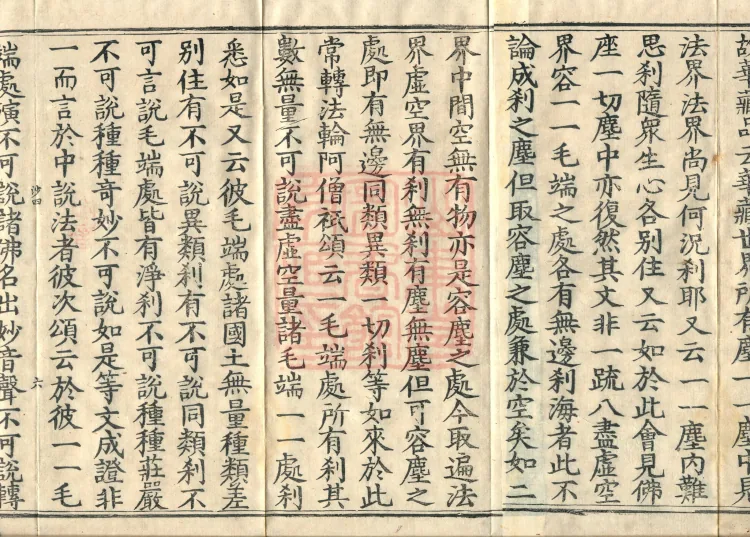 故華藏品云華藏世界所有塵一一塵中見
法界法界尚見何況刹耶又云一一塵內難
思刹隨衆生心各別住又云如於此會見佛
座一切塵中亦復然其文非一䟽八盡虛空
界容一一毛端之處各有無邊刹海者此不
論成刹之塵但取容塵之處兼於空矣如二
界中間空無有物亦是容塵之處今取遍法
界虛空界有刹無刹有塵無塵但可容塵之
處即有無邊同類異類一切刹等如來於此
常轉法輪阿僧祇頌云一毛端處所有刹其
數無量不可說盡虛空量諸毛端一一處刹
悉如是又云彼毛端處諸國土無量種類差
別住有不可說異類刹有不可說同類刹不
可言說毛端處皆有淨刹不可說種種莊嚴
不可說種種奇妙不可說如是等文成證非
一而言於中說法者彼次頌云於彼一一毛
沙四
六
端處演不可說諸佛名出妙音聲不可說轉